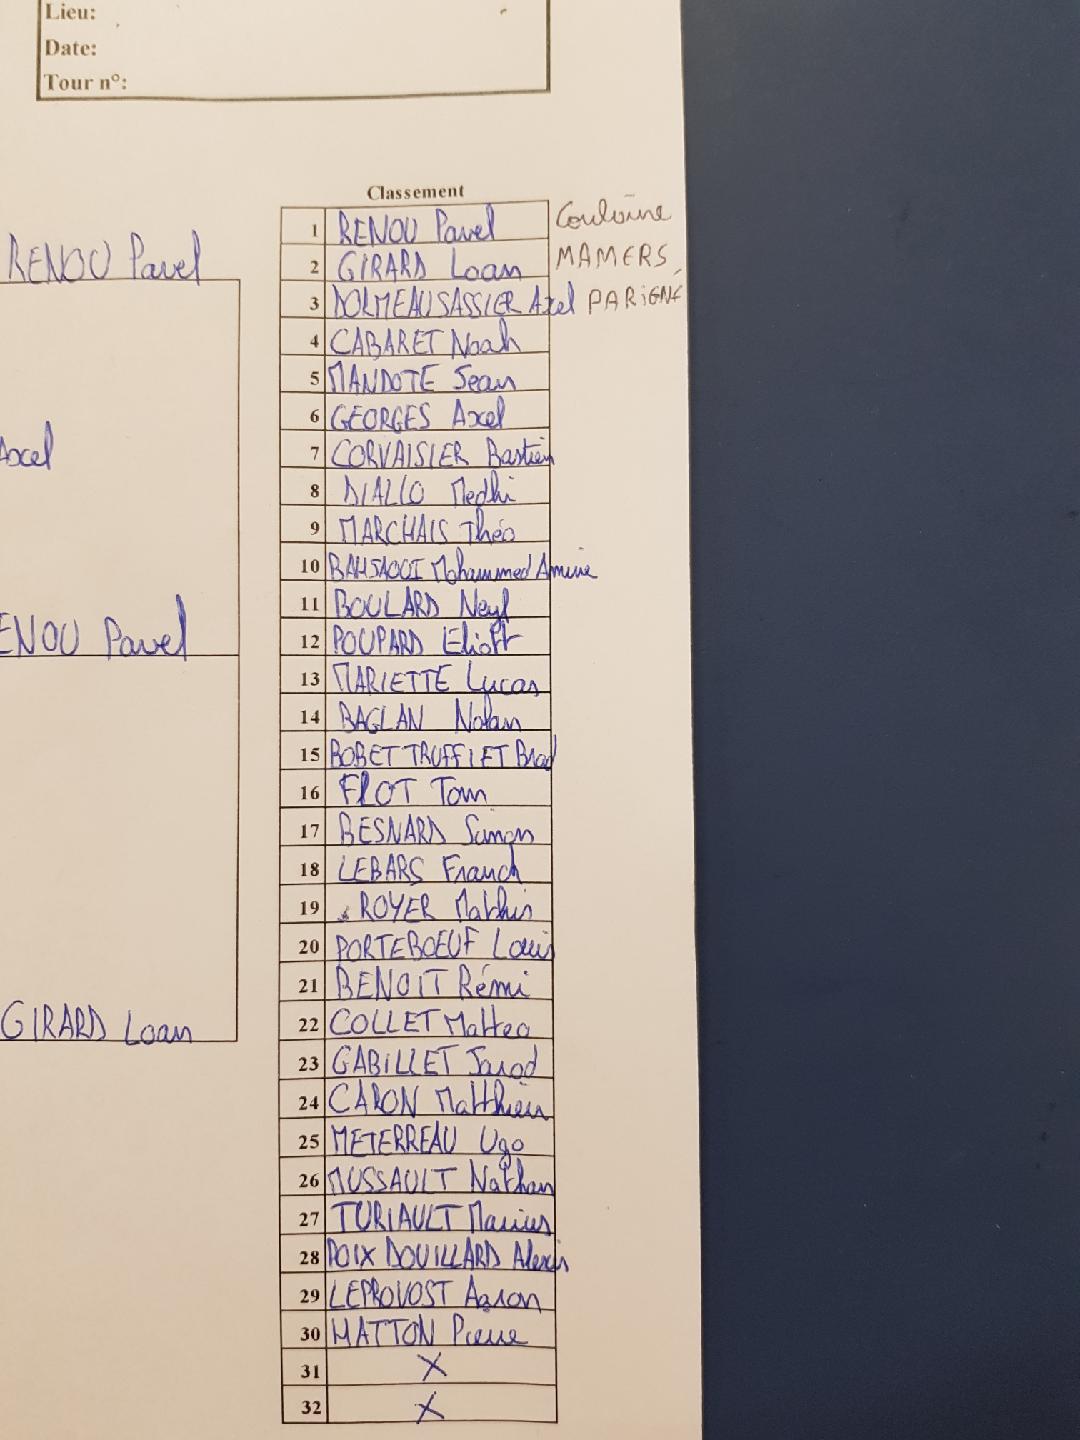 Lieu:
Date:
Tour n°:
Classement
1 RENOU Pavel Coulaine
2 GIRARD Loan MAMERS
3 DORMEAUSASSIER Axel PARIGNE
4 CABARET Noah
5 MANDOTE Sean
6 GEORGES Axel
7 CORVAISIER Bastien
8 DIALLO Medhi
9 MARCHAIS Théo
10 Mohammed Amine
11 BOULARD Neyl
12 POUPARD Eliott
13 MARIETTE Lucas
14 BAGLAN Nolan
15 BOBET TRUFFLET Brad
16 FLOT Tom
17 BESNARD Simon
18 LEBARS Franck
19 ROYER Mathis
20 PORTEBOEUF Louis
21 BENOIT Rémi
22 COLLET Matteo
23 GABILLET Jarod
24 CARON Matthieu
25 METERREAU Ugo
26 MUSSAULT Nathan
27 TURIAULT Marius
28 POIX DOUILLARD Alexis
29 LEPROVOST Aaron
30 MATTON Pierre
31 X
32 X
RENOU Pavel
Axel
ENOU Pavel
GIRARD Loan